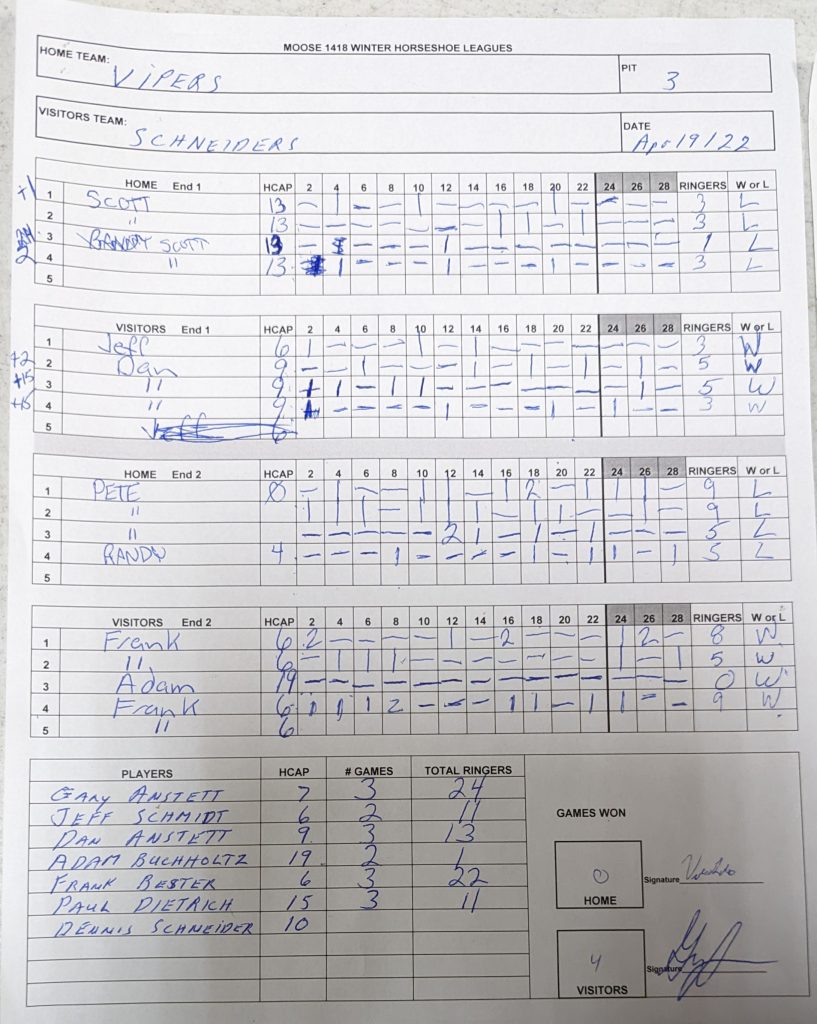 MOOSE 1418 WINTER HORSESHOE LEAGUES
HOME TEAM: VIPERS PIT 3
VISITORS TEAM: SCHNEIDERS DATE Apr 19/22
HOME End 1 HCAP 2 4 6 8 10 12 14 16 18 20 22 24 26 28 RINGERS W or L
+1 1 SCOTT 13 – 1 – – 1 – – – – – – – – – 3 L
2 " 13 – – – – – – – 1 1 – 1 – – – 3 L
3 SCOTT 13 – – – – 1 – – – – – – – – 1 L
2 4 " 13 1 – – – 1 – – – 1 – – – – 3 L
5
VISITORS End 1 HCAP 2 4 6 8 10 12 14 16 18 20 22 24 26 28 RINGERS W or L
1 Jeff 6 1 – – – 1 – 1 – – – – – – – 3 W
+2 2 Dan 9 – – 1 – – – 1 – 1 – 1 – 1 – 5 W
+15 3 " 9 1 1 – 1 1 – – – – – – – 1 – 5 W
+15 4 " 9 – – – – 1 – – – 1 – 1 – – 3 W
5
HOME End 2 HCAP 2 4 6 8 10 12 14 16 18 20 22 24 26 28 RINGERS W or L
1 PETE 0 – 1 – – 1 1 – 1 2 – 1 1 1 – 9 L
2 " 1 1 – 1 1 1 – 1 – – 1 – 1 – 9 L
3 " – – – – – 2 1 – 1 – 1 – – – 5 L
4 RANDY 4 – – – 1 – – – – 1 – 1 1 – 1 5 L
5
VISITORS End 2 HCAP 2 4 6 8 10 12 14 16 18 20 22 24 26 28 RINGERS W or L
1 Frank 6 2 – – – – 1 – 2 – – – 1 2 – 8 W
2 " 6 – 1 1 1 – – – – – – – 1 – 1 5 W
3 Adam 19 – – – – – – – – – – – – – – 0 W
4 Frank 6 1 1 1 2 – – – 1 1 – 1 1 – – 9 W
5 " 6
PLAYERS HCAP # GAMES TOTAL RINGERS
GARY ANSTETT 7 3 24
JEFF SCHMIDT 6 2 11
DAN ANSTETT 9 3 13
ADAM BUCHHOLTZ 19 2 1
FRANK BESTER 6 3 22
PAUL DIETRICH 15 3 11
DENNIS SCHNEIDER 10
GAMES WON
0 Signature
HOME
4 Signature
VISITORS